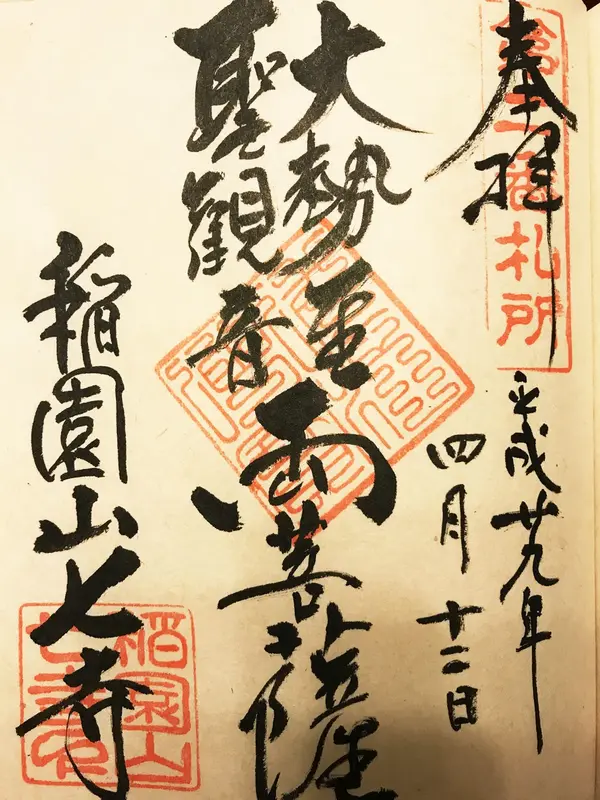 奉拝
番札所
平成廿九年
四月十二日
大勢至
聖観音
両菩薩
稲園山七寺
稲園山